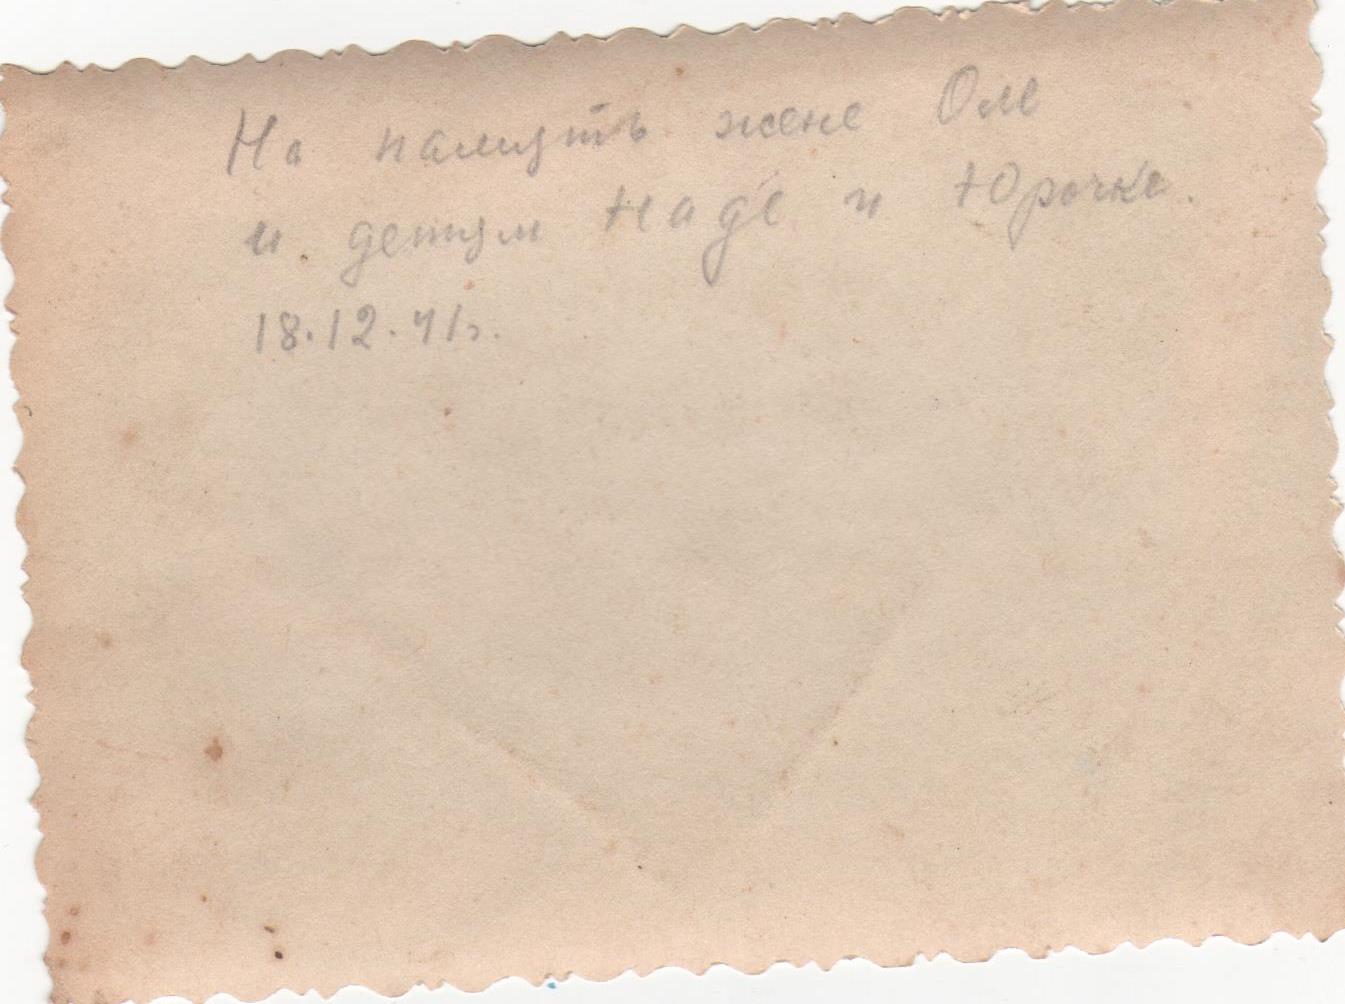 На память жене Оле
и детям Наде и Юрочке.
18.12.41г.